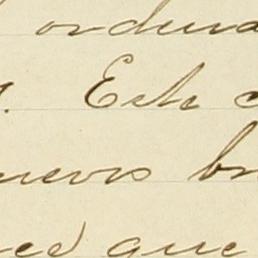 ordena
Este c
nuevos br
ced que